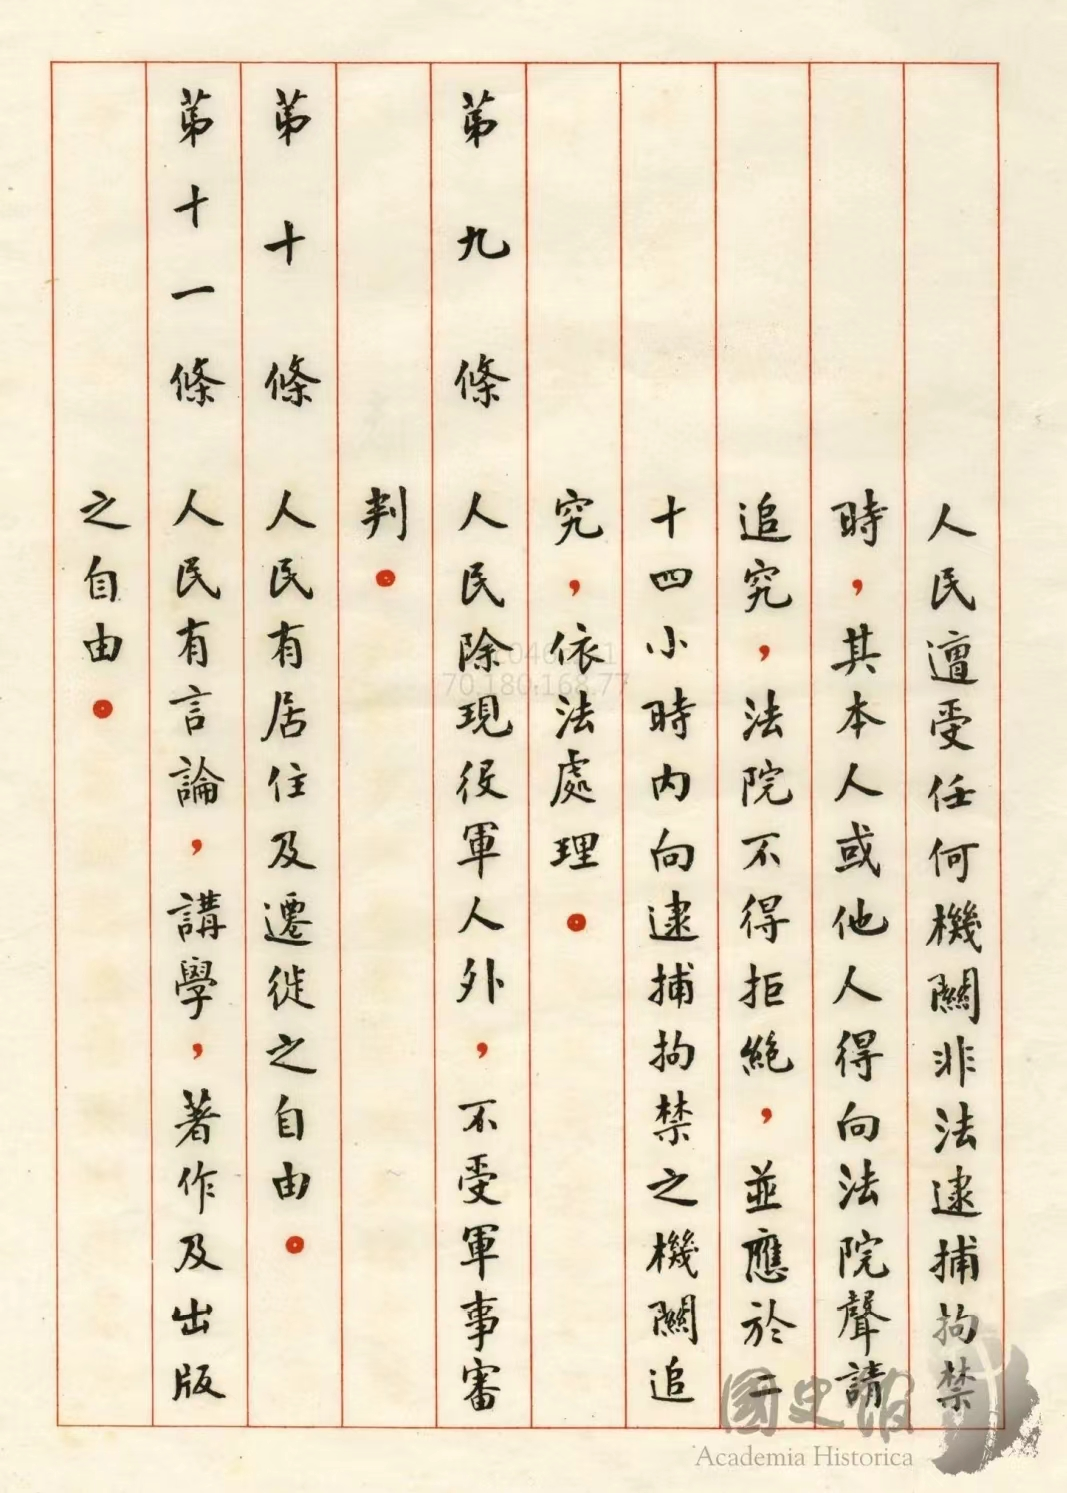 人民遭受任何機關非法逮捕拘禁
時，其本人或他人得向法院聲請
追究，法院不得拒絕，並應於二
十四小時內向逮捕拘禁之機關追
究，依法處理。
第九條　人民除現役軍人外，不受軍事審
判。
第十條　人民有居住及遷徙之自由。
第十一條　人民有言論，講學，著作及出版
之自由。
70.180.168.77
國史館
Academia Historica